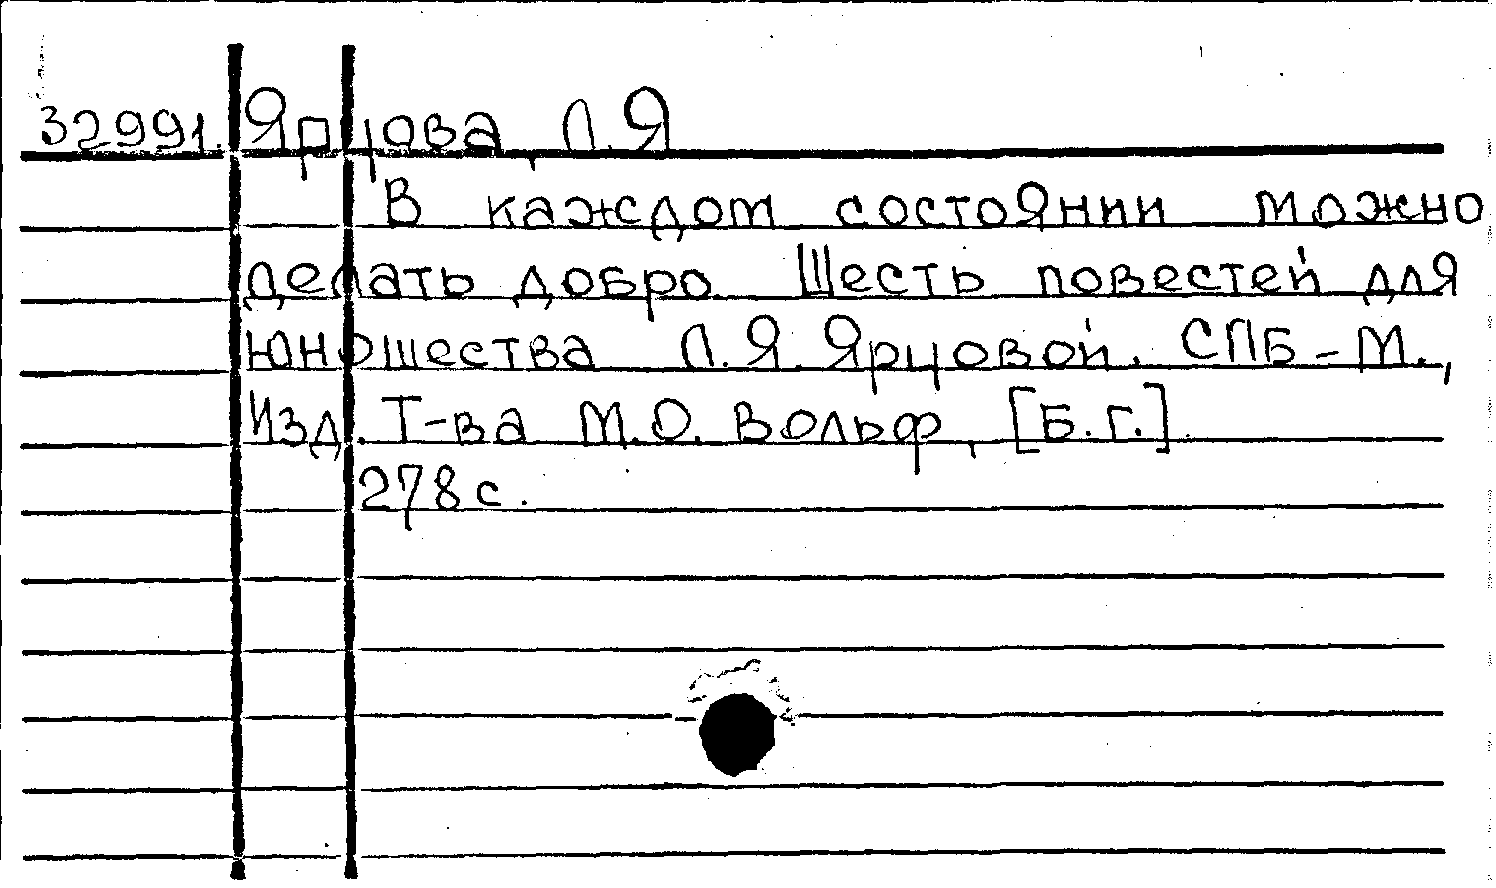 32991. Ярцова, Л.Я
В каждом состоянии можно
делать добро. Шесть повестей для
юношества Л.Я. Ярцовой. СПБ-М.,
Изд. Т-ва М.О. Вольф, [Б.г.].
278 с.